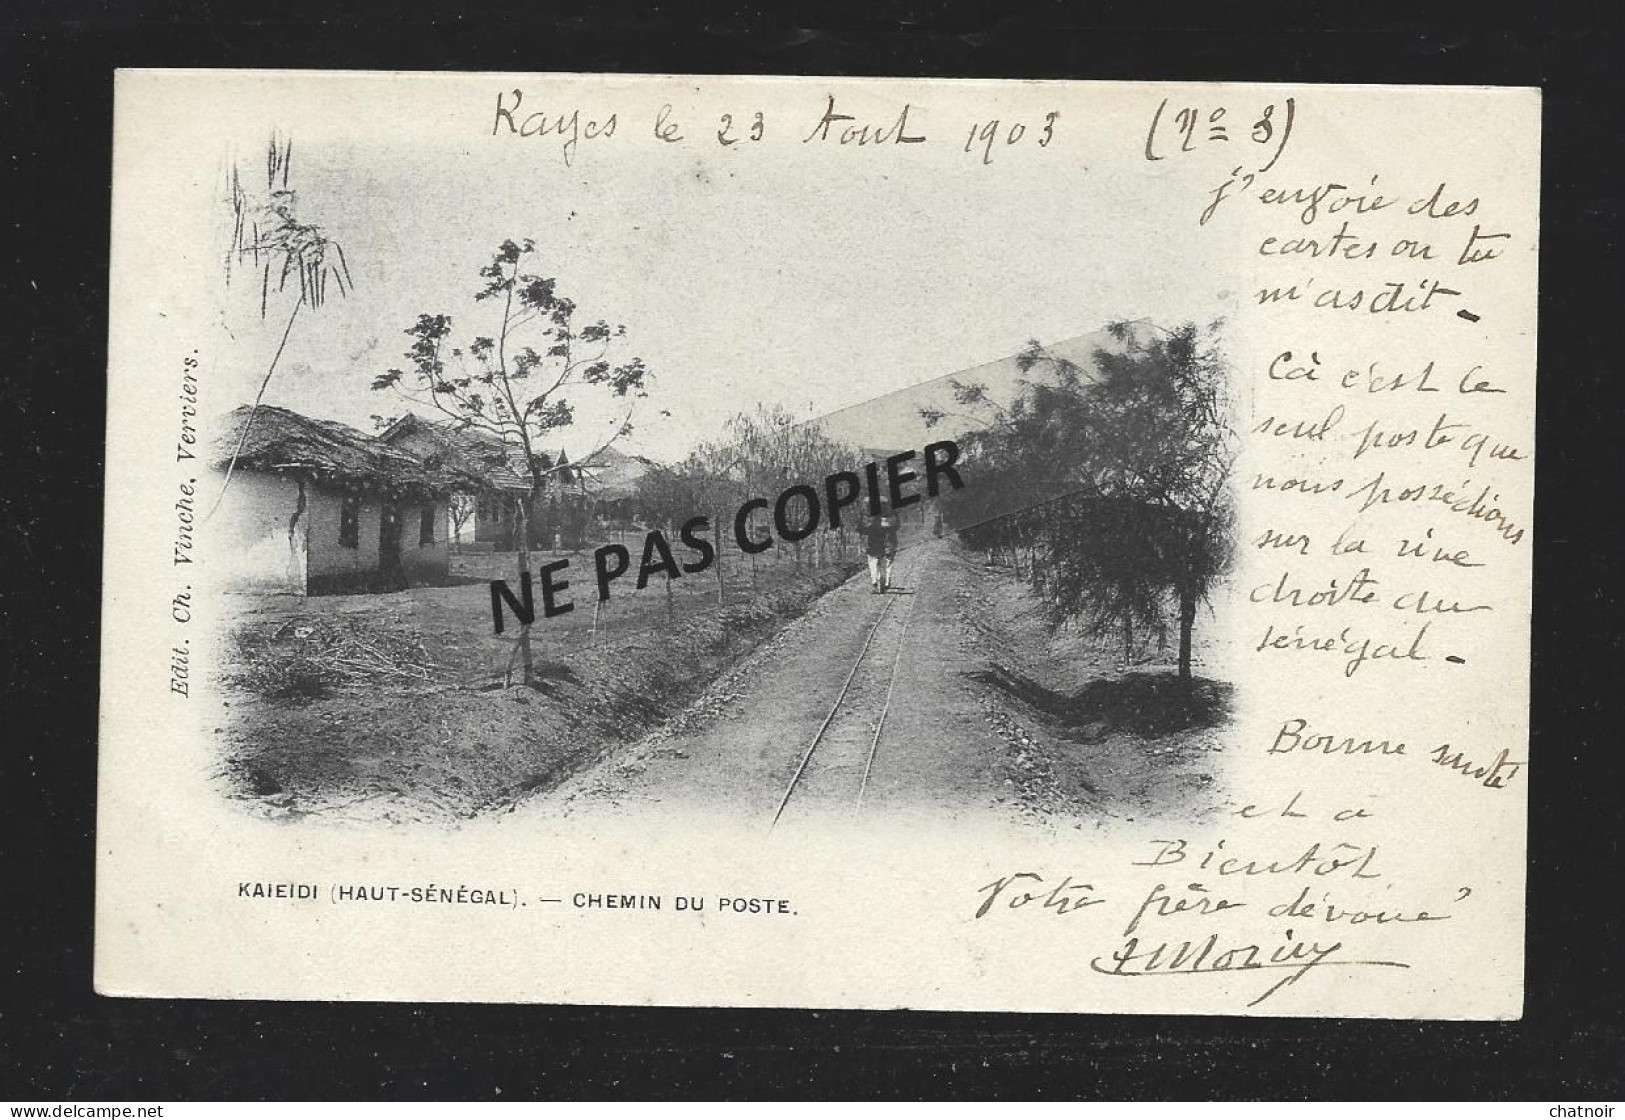 Kayes le 23 Aout 1903 (Nº 8)
j'envoie des
cartes ou tu
m'as dit -
Cà c'est le
seul poste que
nous possédions
sur la rive
droite du
sénégal -
Bonne santé
et a
Bientôt
Votre frère dévoué
Edit. Ch. Vinche, Verviers.
NE PAS COPIER
KAIEIDI (HAUT-SÉNÉGAL). — CHEMIN DU POSTE.
delcampe.net
chatnoir